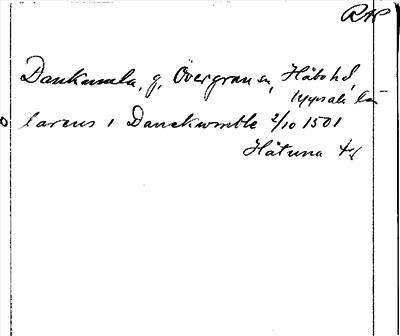 RAP
Dankumla, g, Övergrans sn, Håbo hd,
Uppsala län
larens i Danckwmble 2/10 1501
Håtuna